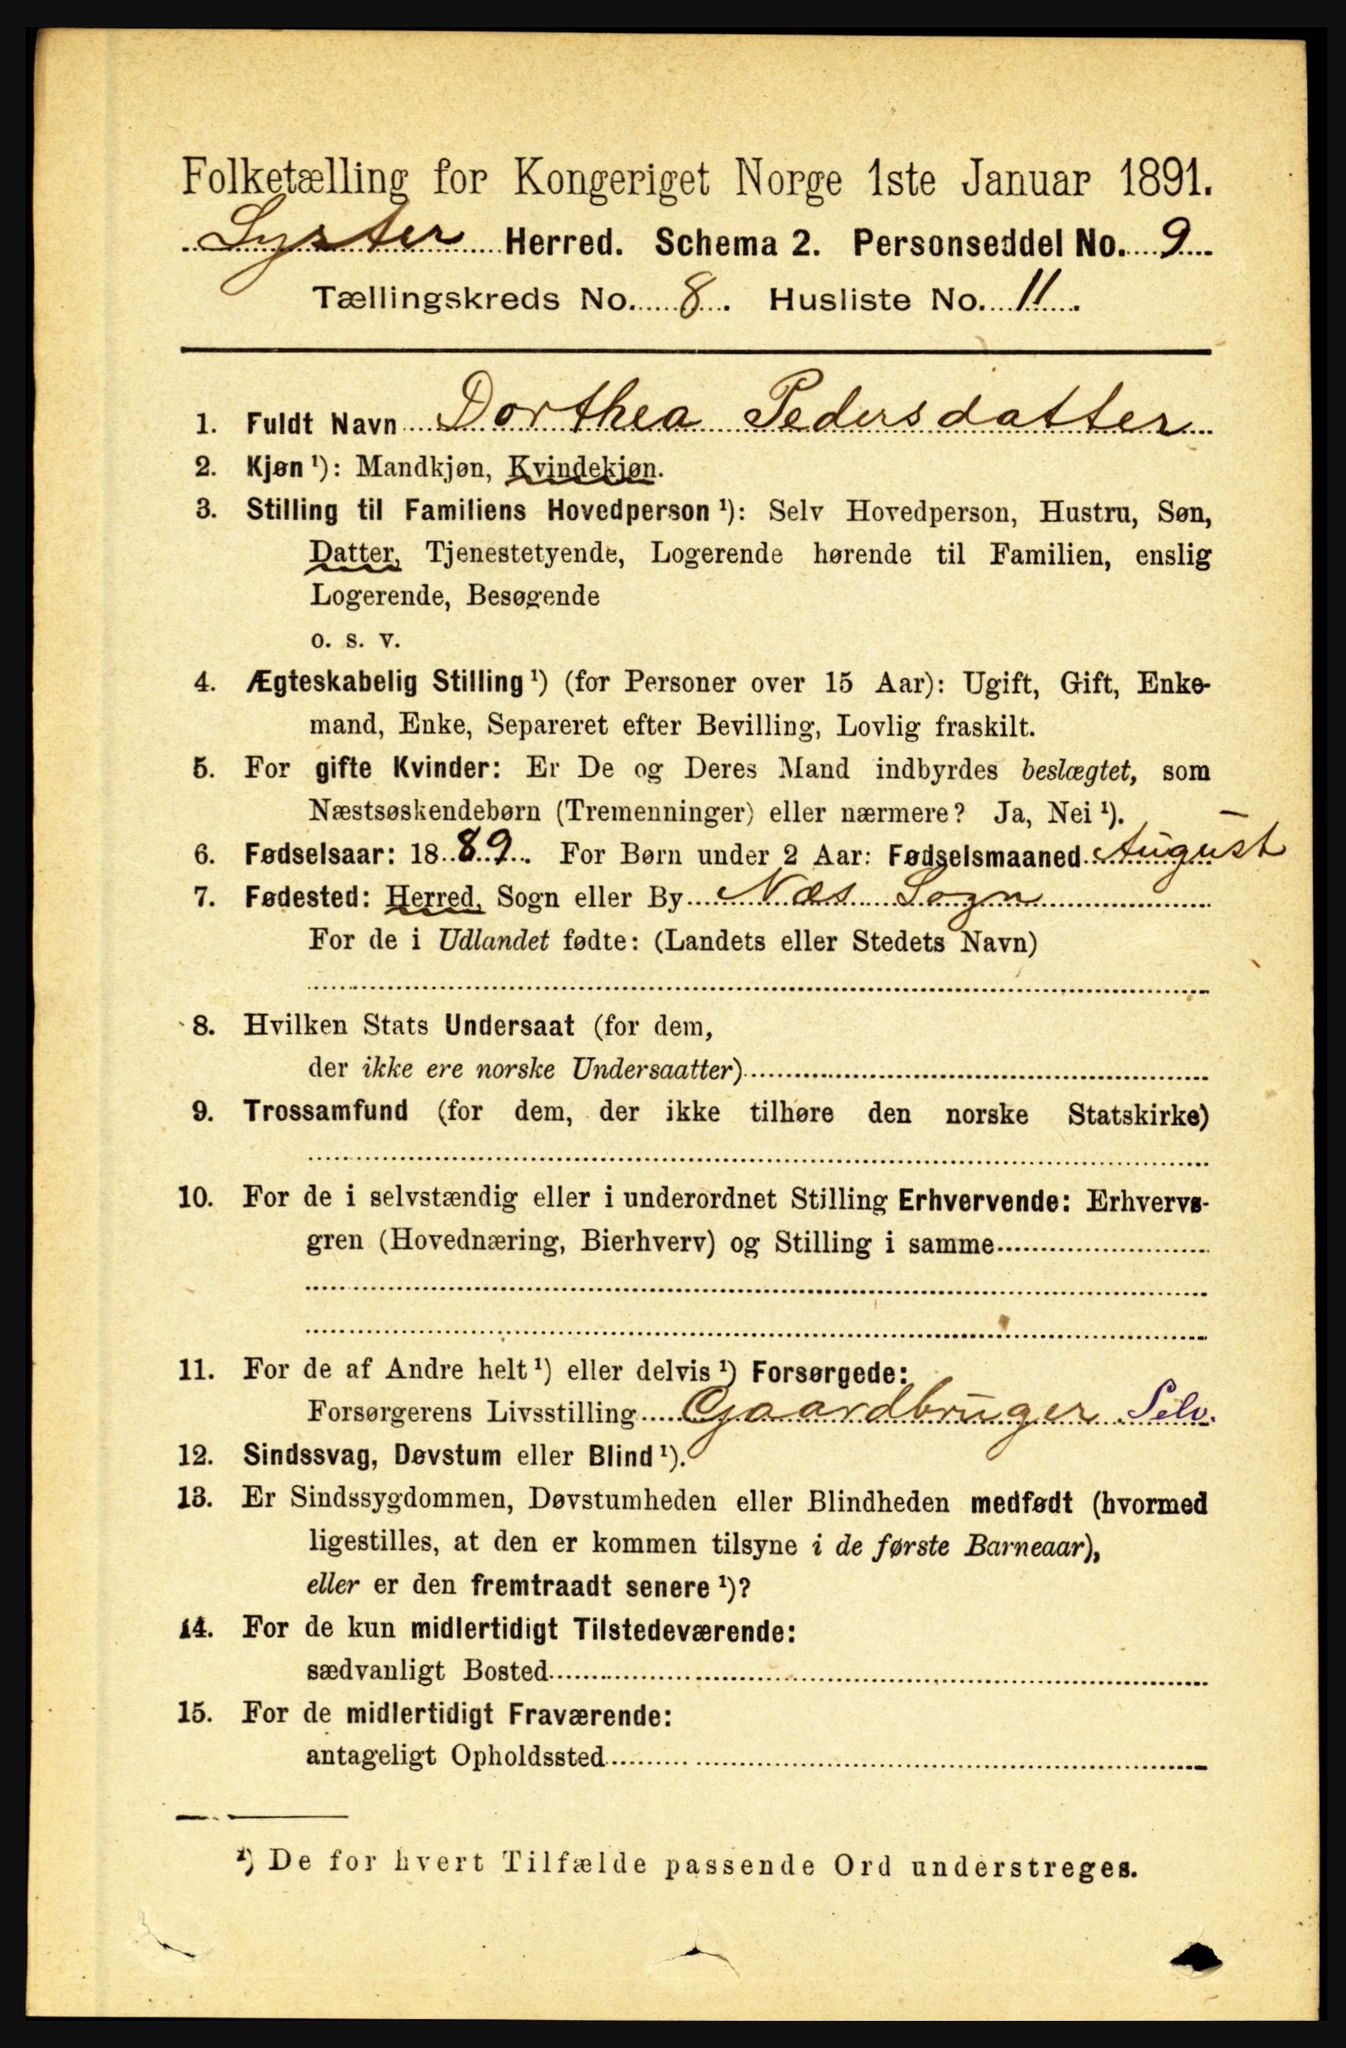 Folketælling for Kongeriget Norge 1ste Januar 1891.
Lyster Herred. Schema 2. Personseddel No. 9
Tællingskreds No. 8. Husliste No. 11.
1. Fuldt Navn Dorthea Pedersdatter
2. Kjøn ¹): Mandkjøn, Kvindekjøn.
3. Stilling til Familiens Hovedperson ¹): Selv Hovedperson, Hustru, Søn,
Datter, Tjenestetyende, Logerende hørende til Familien, enslig
Logerende, Besøgende
o. s. v.
4. Ægteskabelig Stilling ¹) (for Personer over 15 Aar): Ugift, Gift, Enke-
mand, Enke, Separeret efter Bevilling, Lovlig fraskilt.
5. For gifte Kvinder: Er De og Deres Mand indbyrdes beslægtet, som
Næstsøskendebørn (Tremenninger) eller nærmere? Ja, Nei ¹).
6. Fødselsaar: 1889. For Børn under 2 Aar: Fødselsmaaned August
7. Fødested: Herred, Sogn eller By Næs Sogn
For de i Udlandet fødte: (Landets eller Stedets Navn)
8. Hvilken Stats Undersaat (for dem,
der ikke ere norske Undersaatter)
9. Trossamfund (for dem, der ikke tilhøre den norske Statskirke)
10. For de i selvstændig eller i underordnet Stilling Erhvervende: Erhvervs-
gren (Hovednæring, Bierhverv) og Stilling i samme
11. For de af Andre helt ¹) eller delvis ¹) Forsørgede:
Forsørgerens Livsstilling Gaardbruger Selv.
12. Sindssvag, Døvstum eller Blind ¹).
13. Er Sindssygdommen, Døvstumheden eller Blindheden medfødt (hvormed
ligestilles, at den er kommen tilsyne i de første Barneaar),
eller er den fremtraadt senere ¹)?
14. For de kun midlertidigt Tilstedeværende:
sædvanligt Bosted
15. For de midlertidigt Fraværende:
antageligt Opholdssted
¹) De for hvert Tilfælde passende Ord understreges.